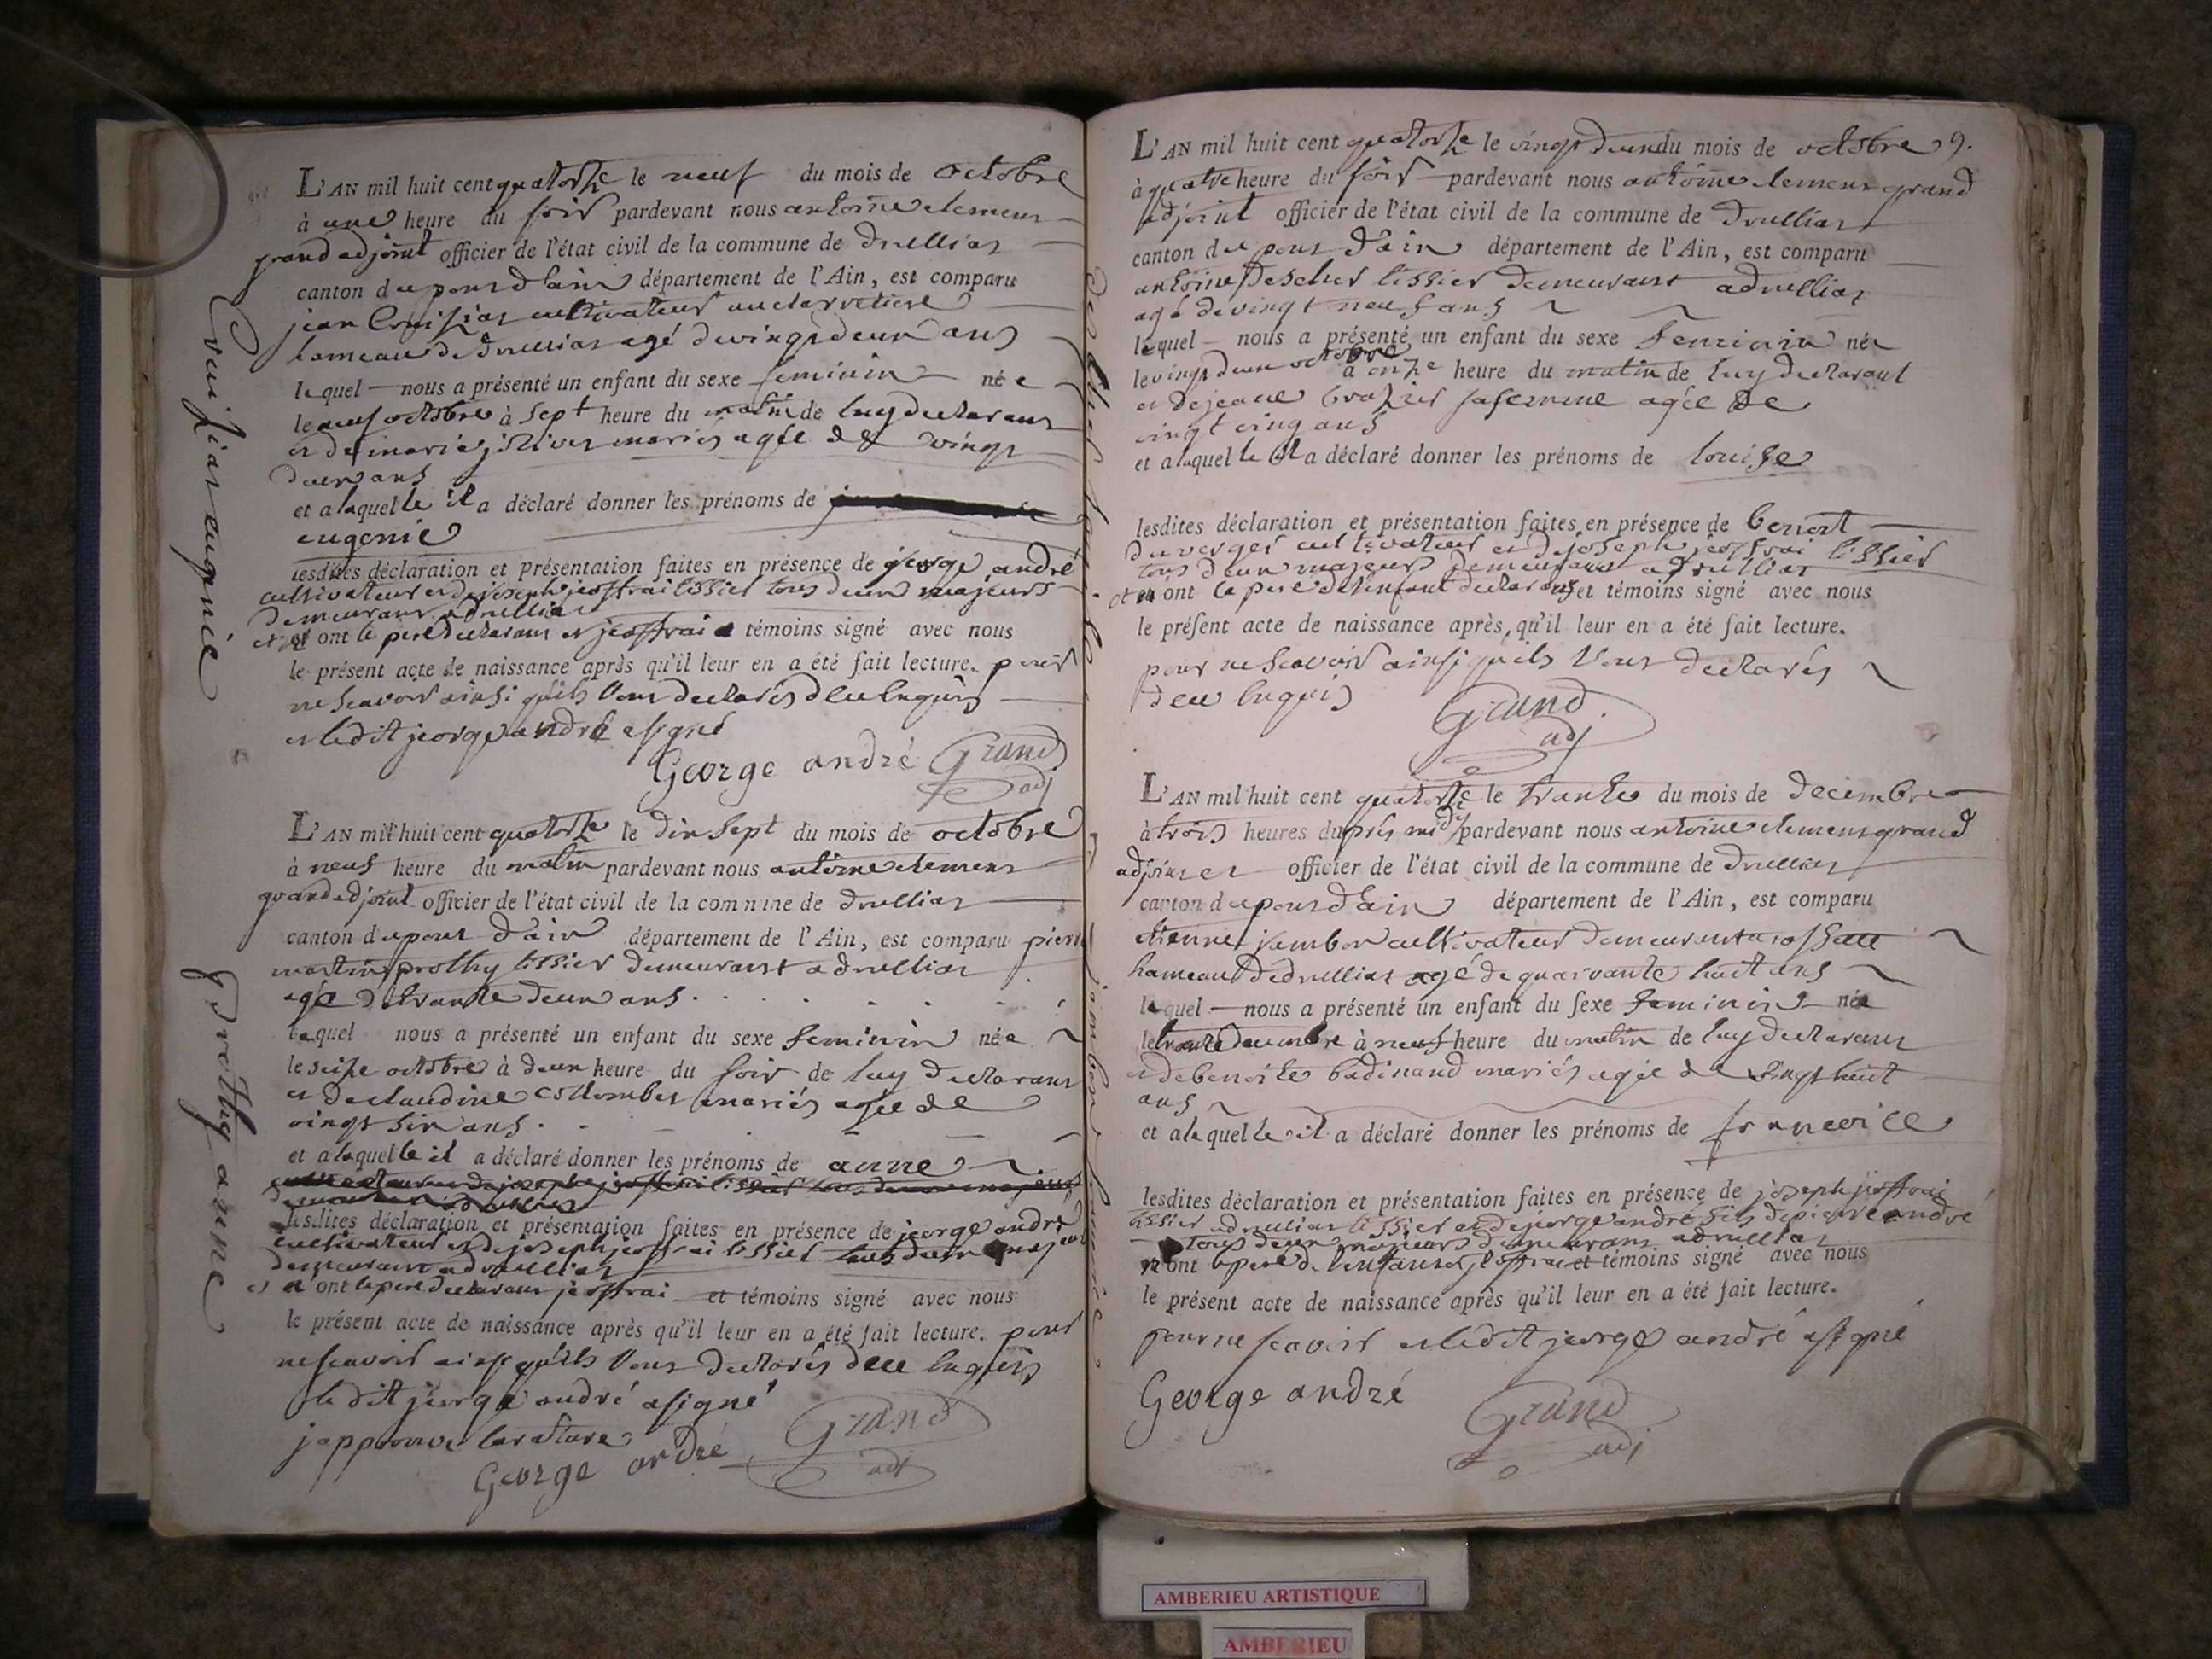 L'AN mil huit cent quatorze le neuf du mois de octobre
à une heure du soir pardevant nous antoine clemens
grand adjoint officier de l'état civil de la commune de druillias
canton du pont d'ain département de l'Ain, est comparu
jean cultivateur
hameau de druillias agé de vingt deux ans
lequel nous a présenté un enfant du sexe feminin née
le neuf octobre à sept heure du matin de luy declarant
et de mariés agée de vingt
deux ans
et a laquelle il a déclaré donner les prénoms de
eugenie
lesdites déclaration et présentation faites en présence de jeorge andré
cultivateur et de joseph jeoffrai tissier tous deux majeurs
demeurant a druillias
et ont le pere declarant et jeoffrai témoins signé avec nous
le présent acte de naissance après qu'il leur en a été fait lecture. pour
ne scavoir ainsi qu'ils l'ont declarés de ce enquis
et ledit jeorge andré a signé
George andré Grand
adj
eugenie
L'AN mil huit cent quatorze le dix sept du mois de octobre
à neuf heure du matin pardevant nous antoine clemens
grand adjoint officier de l'état civil de la commune de druillias
canton du pont d'ain département de l'Ain, est comparu pierre
martin prothy tissier demeurant a druillias
agé de trante deux ans.
lequel nous a présenté un enfant du sexe feminin née
le seize octobre à deux heure du soir de luy declarant
et de claudine mariés agée de
vingt six ans.
et a laquelle il a déclaré donner les prénoms de anne
lesdites déclaration et présentation faites en présence de jeorge andré
cultivateur et de joseph jeoffrai tissier tous deux majeurs
demeurant a druillias
et n'ont le pere declarant jeoffrai et témoins signé avec nous
le présent acte de naissance après qu'il leur en a été fait lecture. pour
ne scavoir ainsi qu'ils l'ont declarés de ce enquis
ledit jeorge andré a signé
japprouve la rature
George andré Grand
adj
prothy anne
L'AN mil huit cent quatorze le vingt deux du mois de octobre 9.
à quatre heure du soir pardevant nous antoine clemens grand
adjoint officier de l'état civil de la commune de druillias
canton du pont d'ain département de l'Ain, est comparu
antoine descher tissier demeurant a druillias
agé de vingt neuf ans
lequel nous a présenté un enfant du sexe feminin née
le vingt deux octobre à onze heure du matin de luy declarant
et de jeane sa femme agée de
vingt cinq ans
et a laquelle il a déclaré donner les prénoms de louise
lesdites déclaration et présentation faites en présence de benoit
duverger cultivateur et de joseph jeoffrai tissier
tous deux majeurs demeurant a druillias
et n ont le pere de l'enfant declarant et témoins signé avec nous
le présent acte de naissance après, qu'il leur en a été fait lecture.
pour ne scavoir ainsi qu'ils l'ont declarés
de ce enquis
Grand
adj
L'AN mil huit cent quatorze le trante du mois de decembre
à trois heures du près midi pardevant nous antoine clemens grand
adjoint officier de l'état civil de la commune de druillias
canton du pont d'ain département de l'Ain, est comparu
etienne jambon cultivateur demeurent a rossette
hameau de druillias agé de quarante huit ans
lequel nous a présenté un enfant du sexe feminin née
le trante decembre à neuf heure du matin de luy declarant
et de benoite mariés agée de vingt huit
ans
et a laquelle il a déclaré donner les prénoms de francoice
lesdites déclaration et présentation faites en présence de joseph jeoffrai
tissier a druillias tissier et de jeorge andré fils de pierre andré
tous deux majeurs demeurant a druillias
n ont le pere de l'enfant et jeoffrai et témoins signé avec nous
le présent acte de naissance après qu'il leur en a été fait lecture.
pour ne scavoir et ledit jeorge andré a signé
George andré Grand
adj
AMBERIEU ARTISTIQUE
AMBERIEU